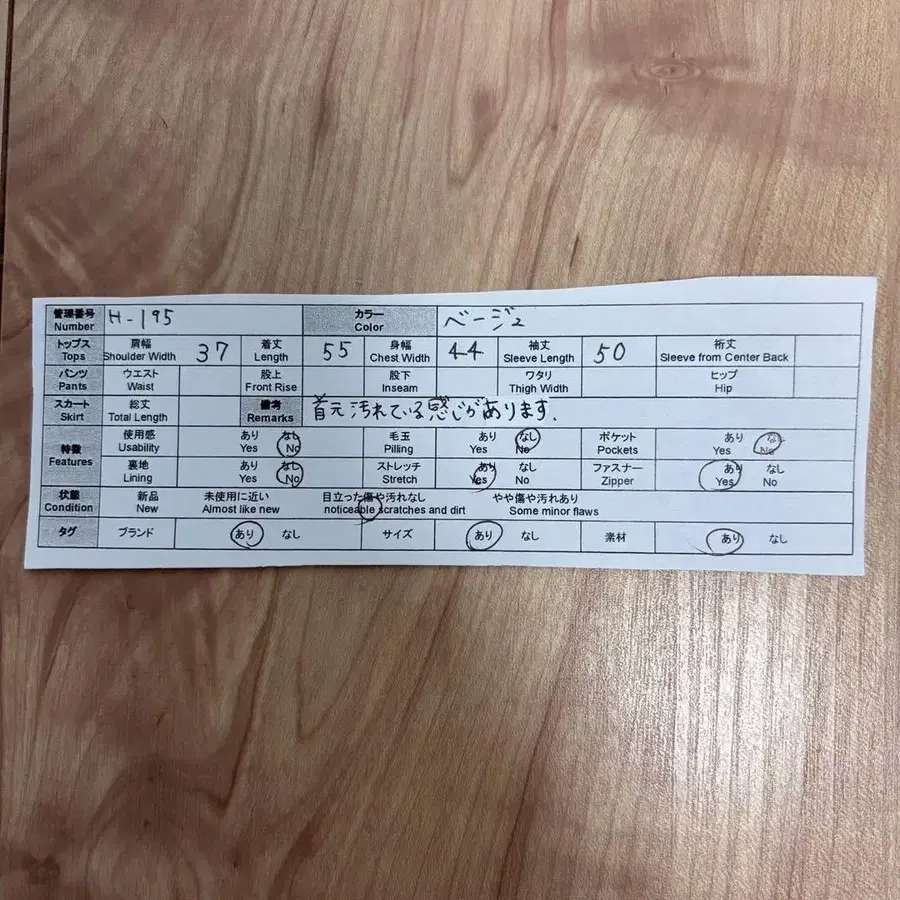 管理番号 H-195 カラー ベージュ
Number Color
トップス 肩幅 37 着丈 55 身幅 44 袖丈 50 裄丈
Tops Shoulder Width Length Chest Width Sleeve Length Sleeve from Center Back
パンツ ウエスト 股上 股下 ワタリ ヒップ
Pants Waist Front Rise Inseam Thigh Width Hip
スカート 総丈 備考 首元汚れている感じがあります.
Skirt Total Length Remarks
特徴 使用感 あり なし 毛玉 あり なし ポケット あり なし
Features Usability Yes No Pilling Yes No Pockets Yes No
裏地 あり なし ストレッチ あり なし ファスナー あり なし
Lining Yes No Stretch Yes No Zipper Yes No
状態 新品 未使用に近い 目立った傷や汚れなし やや傷や汚れあり
Condition New Almost like new noticeable scratches and dirt Some minor flaws
タグ ブランド あり なし サイズ あり なし 素材 あり なし